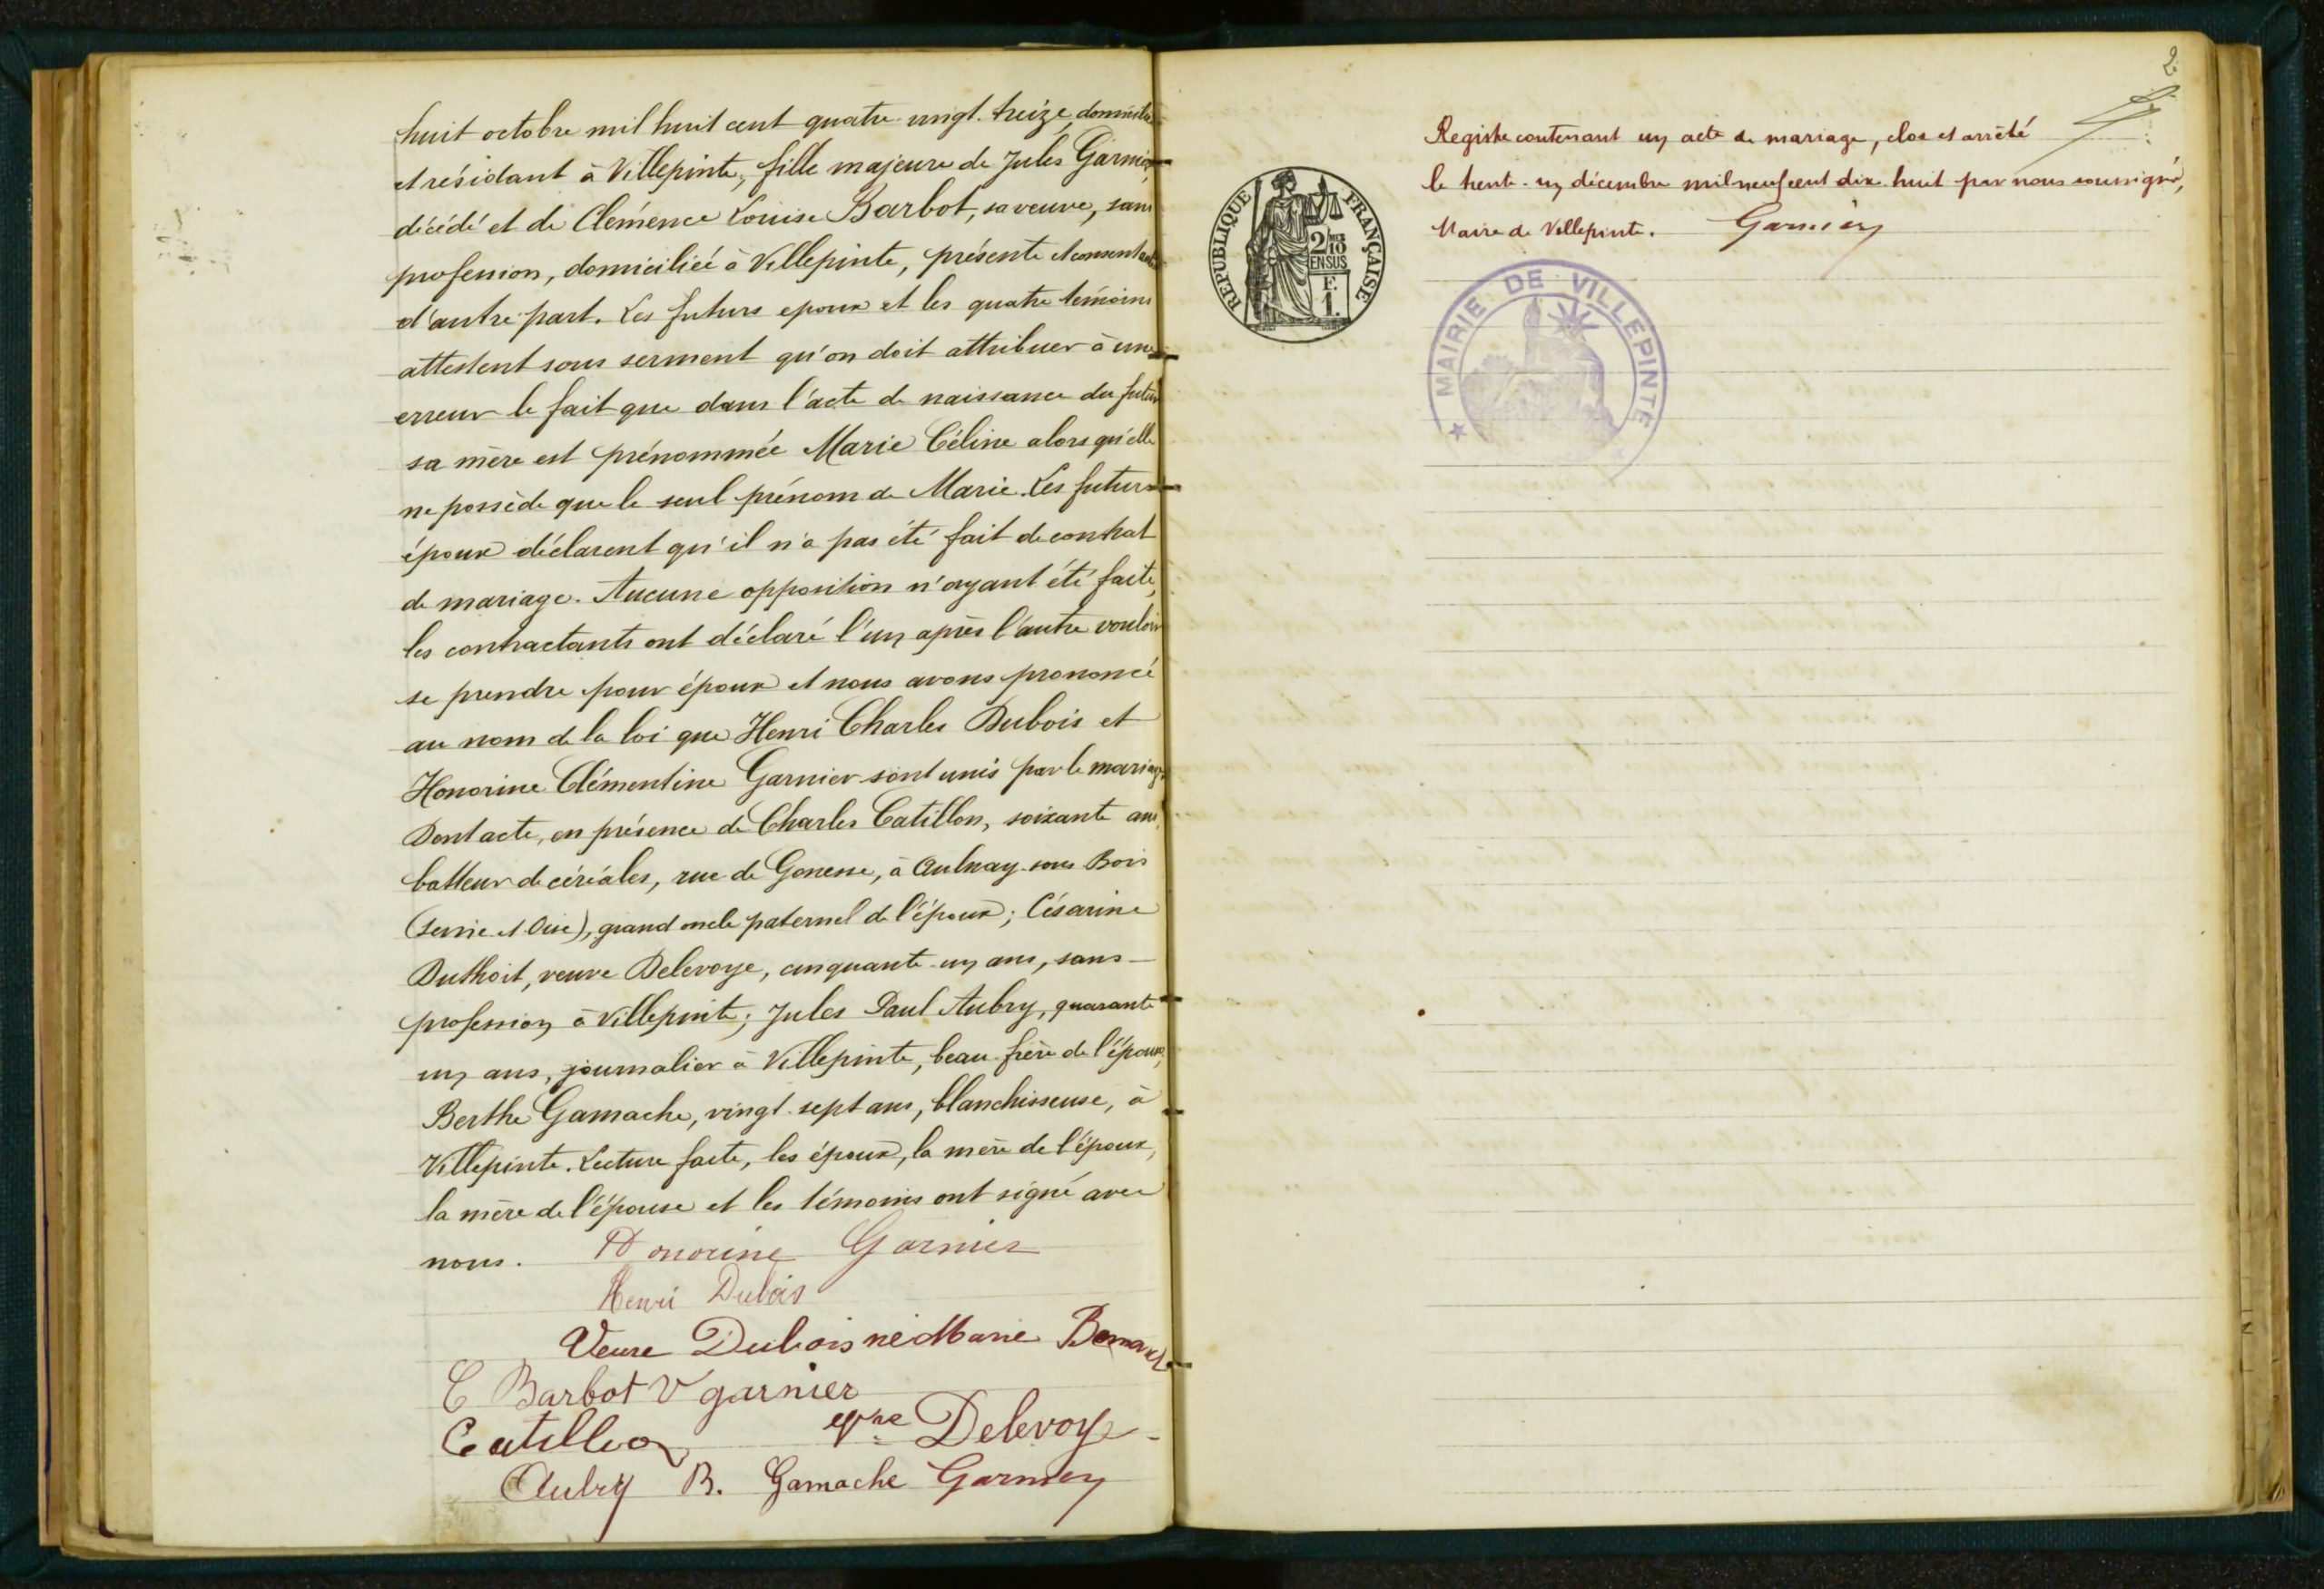 huit octobre mil huit cent quatre vingt. treize, domiciliée
et résidant à Villepinte, fille majeure de Jules Garnier
décédé et de Clémence Louise Barbot, sa veuve, sans
profession, domiciliée à Villepinte, présente et consentante
d'autre part. Les futurs epoux et les quatre témoins
attestent sous serment qu'on doit attribuer à une
erreur le fait que dans l'acte de naissance du futur
sa mère est prénommée Marie Céline alors qu'elle
ne possède que le seul prénom de Marie. Les futurs
époux déclarent qu'il n'a pas été fait de contrat
de mariage. Aucune opposition n'ayant été faite,
les contractants ont déclaré l'un après l'autre vouloir
se prendre pour époux et nous avons prononcé
au nom de la loi que Henri Charles Dubois et
Honorine Clémentine Garnier sont unis par le mariage
Dont acte, en présence de Charles Catillon, soixante ans
batteur de céréales, rue de Gonesse, à Aulnay-sous Bois
(Seine et Oise), grand oncle paternel de l'époux; Césarine
Duthoit, veuve Delevoye, cinquante-un ans, sans
profession à Villepinte; Jules Paul Aubry, quarante
un ans, journalier à Villepinte, beau-frère de l'époux,
Berthe Gamache, vingt-sept ans, blanchisseuse, à
Villepinte. Lecture faite, les époux, la mère de l'époux,
la mère de l'épouse et les témoins ont signé avec
nous. Honorine Garnier
Henri Dubois
Veuve Dubois né Marie
C Barbot V garnier
Catillon Delevoye
Aubry B. Gamache Garnier
2
Registre contenant un acte de mariage, clos et arrêté
le trente-un décembre mil neuf cent dix-huit par nous soussigné,
Maire de Villepinte. Garnier
RÉPUBLIQUE FRANÇAISE
2/10 MES
EN SUS
F.
1.
MAIRIE DE VILLEPINTE